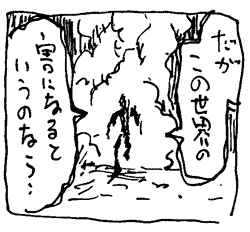 だが
この世界の
害になると
いうのなら…